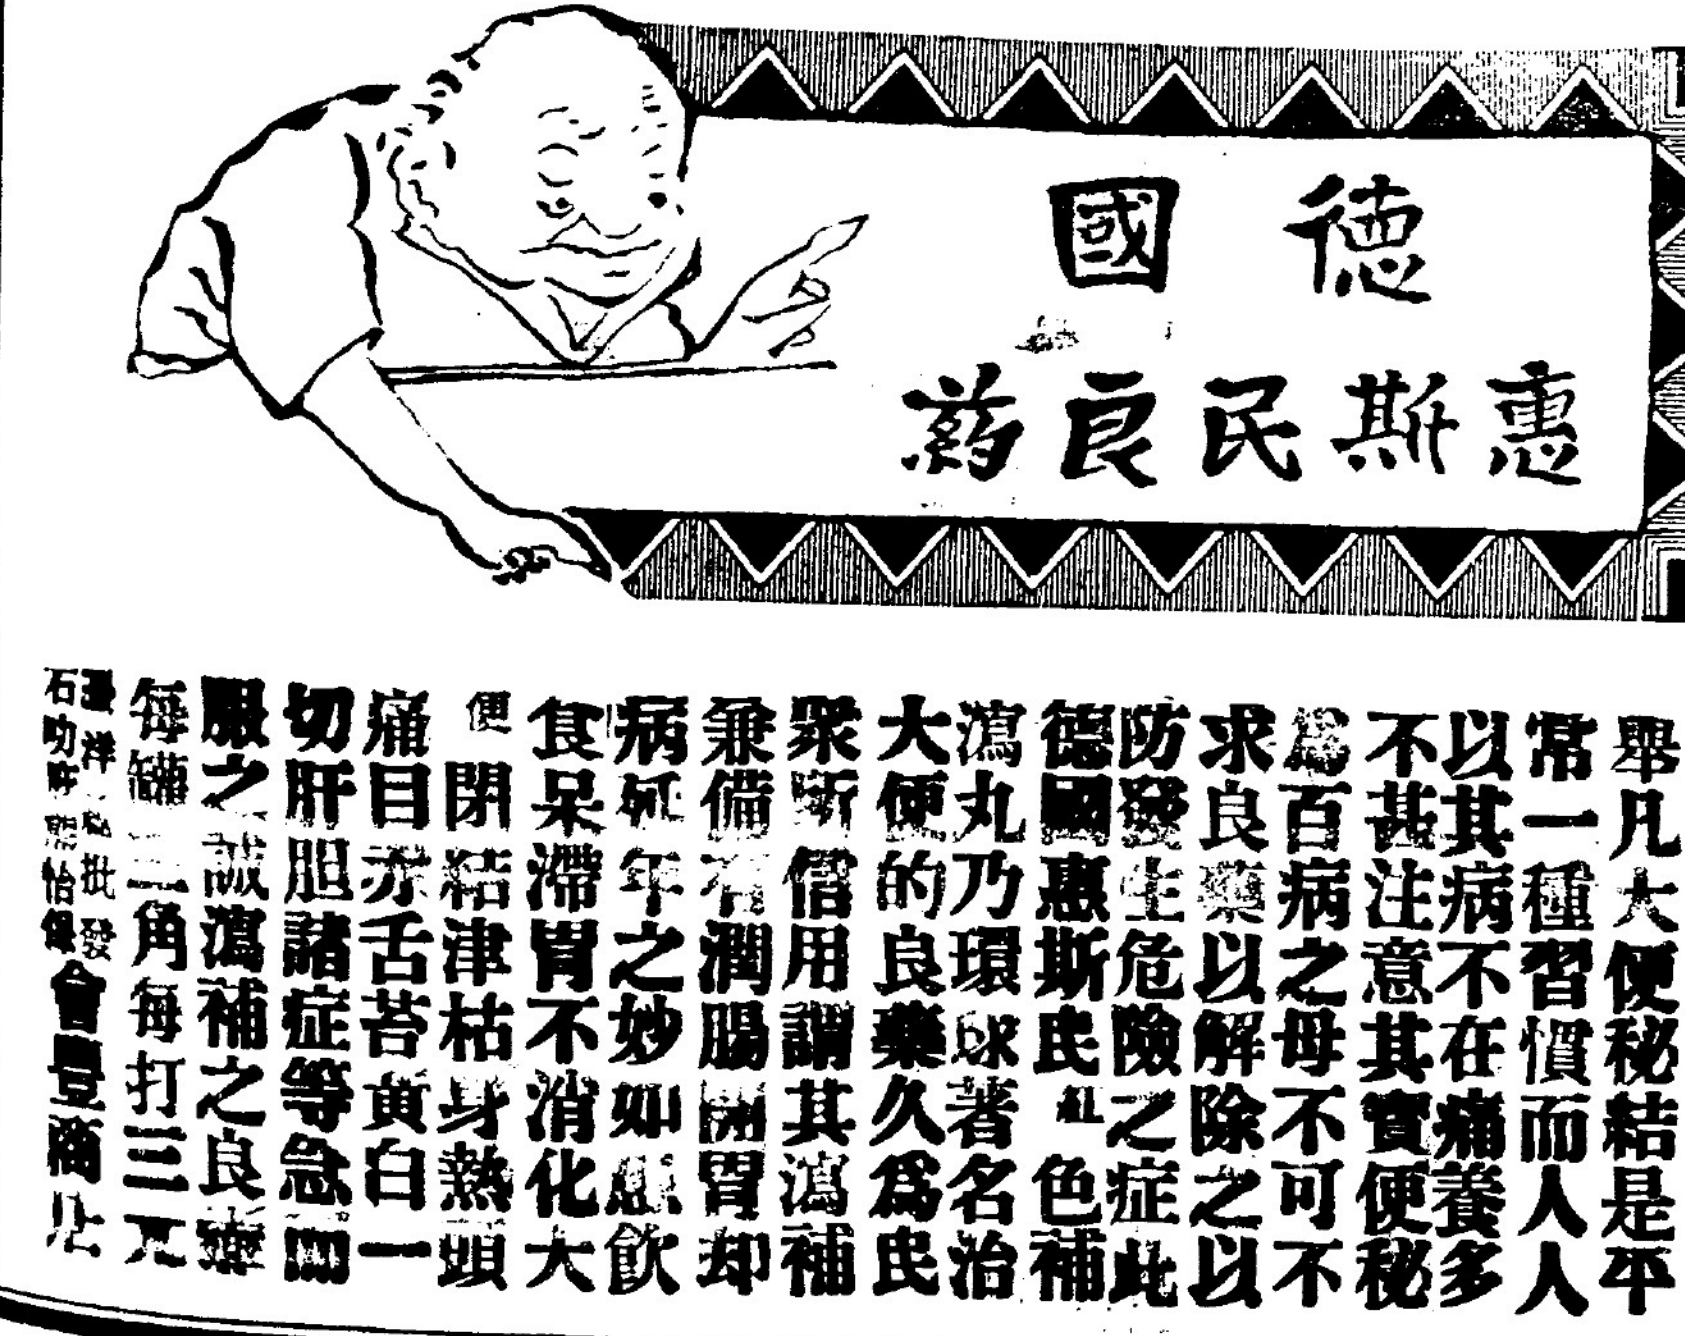 德國
惠斯民良葯
舉凡大便秘結是平
常一種習慣而人人
以其病不在痛養多
不甚注意其實便秘
為百病之母不可不
求良藥以解除之以
防發生危險之症此
德國惠斯民紅色補
瀉丸乃環球著名治
大便的良藥久為民
眾所信用謂其瀉補
兼備有潤腸開胃却
病延年之妙如患飲
食呆滯胃不消化大
便閉結津枯身熱頭
痛目赤舌苔黃白一
切肝胆諸症等急須
服之誠瀉補之良藥
每罐三角每打三元
洋批發
石叻怡保會豐商店